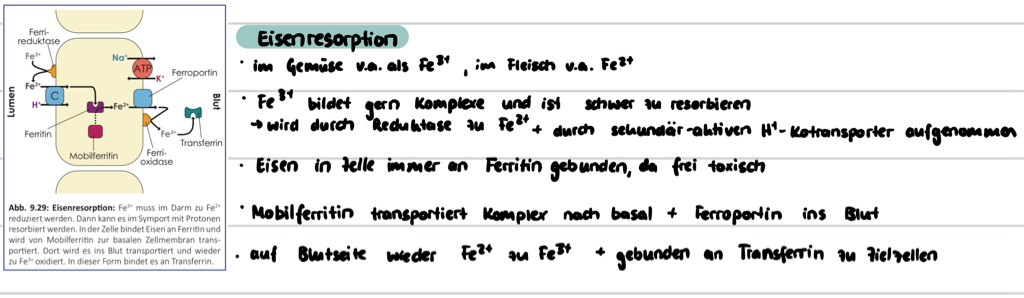 Ferri-
reduktase
Fe³⁺
Fe²⁺
H⁺
C
Lumen
Ferritin
Mobilferritin
Na⁺
ATP
K⁺
Ferroportin
Fe²⁺
Fe³⁺
Ferri-
oxidase
Transferrin
Blut
Abb. 9.29: Eisenresorption: Fe³⁺ muss im Darm zu Fe²⁺
reduziert werden. Dann kann es im Symport mit Protonen
resorbiert werden. In der Zelle bindet Eisen an Ferritin und
wird von Mobilferritin zur basalen Zellmembran trans-
portiert. Dort wird es ins Blut transportiert und wieder
zu Fe³⁺ oxidiert. In dieser Form bindet es an Transferrin.
Eisenresorption
· im Gemüse v.a. als Fe³⁺, im Fleisch v.a. Fe²⁺
· Fe³⁺ bildet gern Komplexe und ist schwer zu resorbieren
→ wird durch Reduktase zu Fe²⁺ + durch sekundär-aktiven H⁺-Kotransporter aufgenommen
· Eisen in Zelle immer an Ferritin gebunden, da frei toxisch
· Mobilferritin transportiert Komplex nach basal + Ferroportin ins Blut
· auf Blutseite wieder Fe²⁺ zu Fe³⁺ + gebunden an Transferrin zu Zielzellen